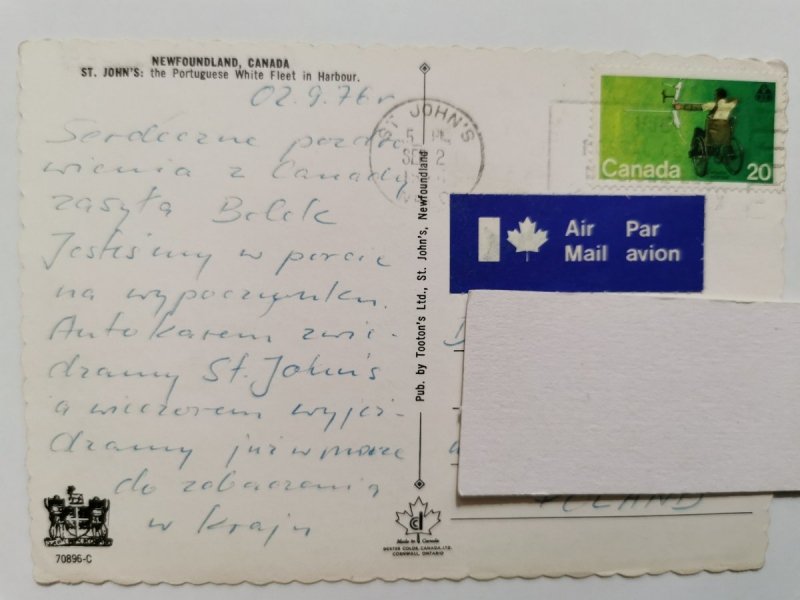 NEWFOUNDLAND, CANADA
ST. JOHN'S: the Portuguese White Fleet in Harbour.
02.9.76 r
Serdeczne pozdro
wienia z Canady
zasyła Bolek
Jesteśmy w porcie
na wypoczynku.
Autokarem zwie-
dzamy St. John's
a wieczorem wyjeż-
dżamy już w morze
do zobaczenia
w kraju
70896-C
Pub. by Tooton's Ltd., St. John's, Newfoundland
Made in Canada
DEXTER COLOR, CANADA, LTD.
CORNWALL, ONTARIO
ST. JOHN'S
5 PM
SEP 2
Canada 20
Air Par
Mail avion
POLAND